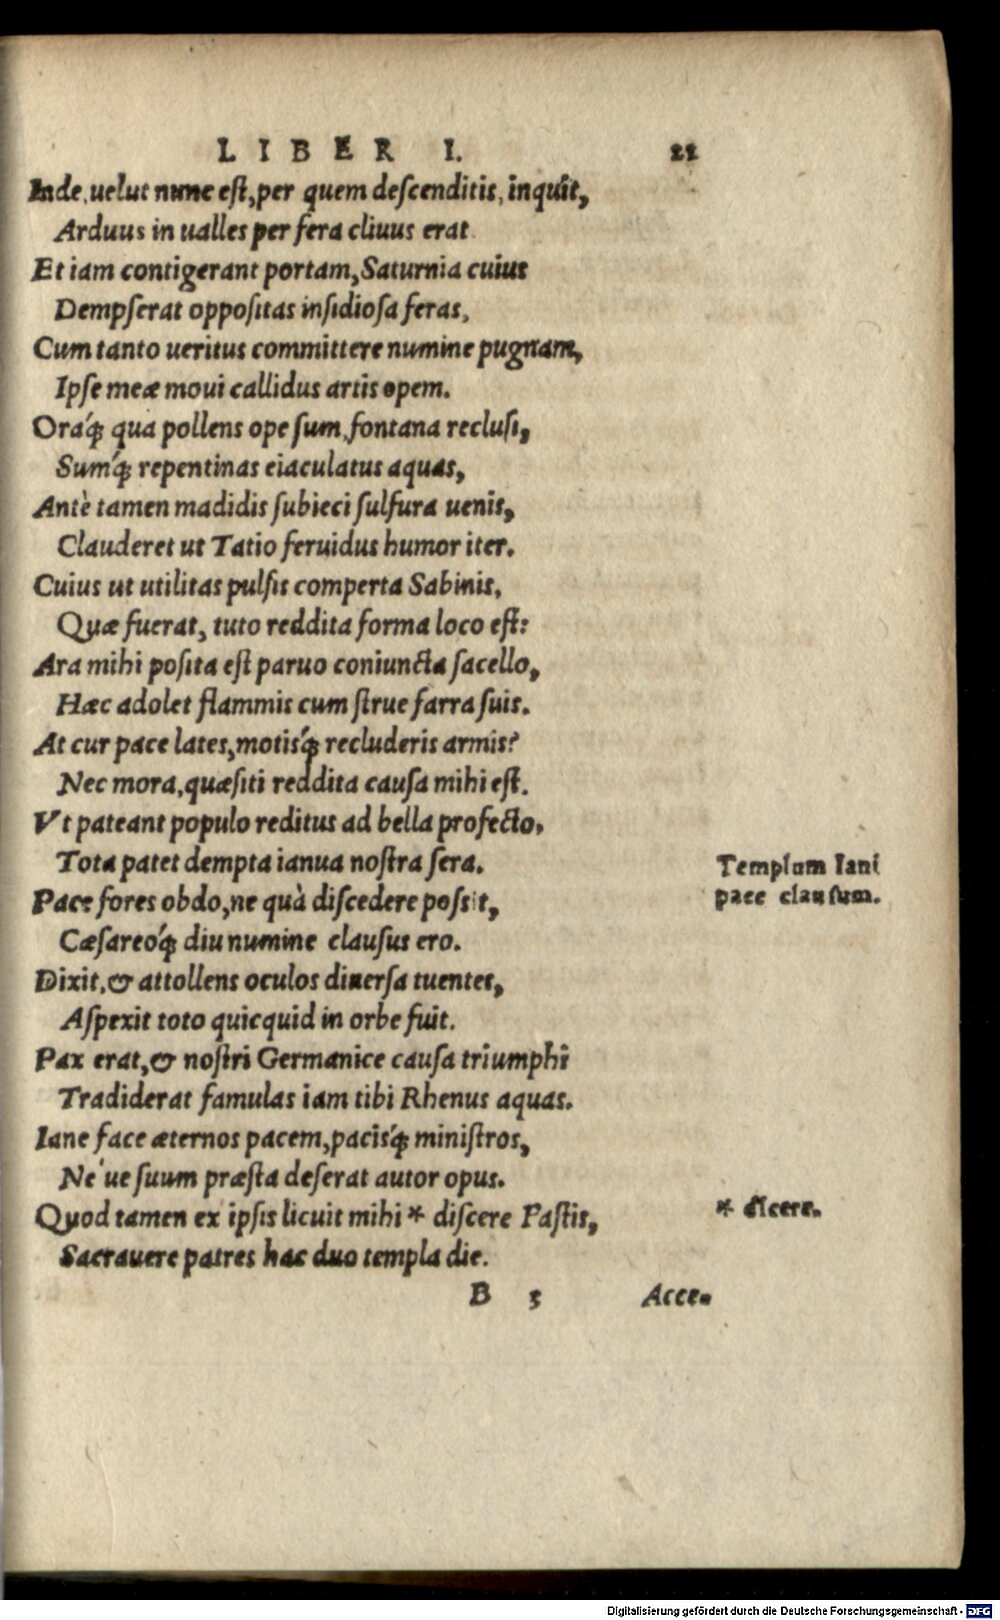 LIBER I. 21
Inde, uelut nunc est, per quem descenditis, inquit,
Arduus in ualles per fera cliuus erat.
Et iam contigerant portam, Saturnia cuius
Dempserat oppositas insidiosa feras,
Cum tanto ueritus committere numine pugnam,
Ipse meæ moui callidus artis opem.
Oraq́; qua pollens ope sum, fontana reclusi,
Sumq́; repentinas eiaculatus aquas,
Antè tamen madidis subieci sulfura uenis,
Clauderet ut Tatio feruidus humor iter.
Cuius ut utilitas pulsis comperta Sabinis,
Quæ fuerat, tuto reddita forma loco est:
Ara mihi posita est paruo coniuncta sacello,
Hæc adolet flammis cum strue farra suis.
At cur pace lates, motisq́; recluderis armis?
Nec mora, quæsiti reddita causa mihi est.
Vt pateant populo reditus ad bella profecto,
Tota patet dempta ianua nostra sera.
Templum Iani
Pace fores obdo, ne quà discedere possit,
pace clausum.
Cæsareoq́; diu numine clausus ero.
Dixit, & attollens oculos diuersa tuentes,
Aspexit toto quicquid in orbe fuit.
Pax erat, & nostri Germanice causa triumphi
Tradiderat famulas iam tibi Rhenus aquas.
Iane face æternos pacem, pacisq́; ministros,
Ne'ue suum præsta deserat autor opus.
Quod tamen ex ipsis licuit mihi * discere Fastis,
* dicere.
Sacrauere patres hac duo templa die.
B 3 Acce-
Digitalisierung gefördert durch die Deutsche Forschungsgemeinschaft - DFG